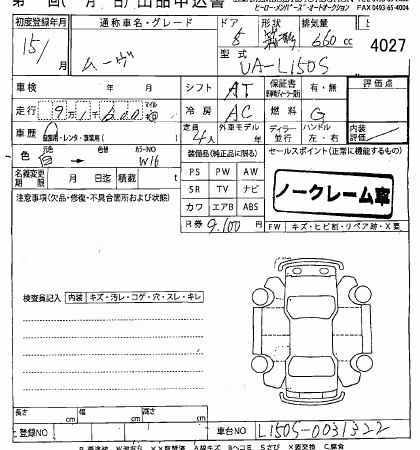 ヒーローメンバーズ・オートオークション FAX 0493-65-4004
初度登録年月 通称車名・グレード ドア 形状 排気量
15/ 月 ムーヴ 5 660 cc 4027
型式 UA-L150S
車検 年 月 シフト AT 保証書 有・無 評価点
走行 冷房 AC 燃料 G
車歴 自家用・レンタ・事業用( ) 定員 4人 外車モデル 年 ディラー 並行 ハンドル 左・右 内装評価
色 白 → 色替 カラーNO W16 装備品(純正品に限る) セールスポイント(正常に機能するもの)
名義変更期限 月 日迄 積載 t
PS PW AW
SR TV ナビ
カワ エアB ABS
ノークレーム車
注意事項(欠品・修復・不具合箇所および状態)
R券 9,100 円 FW キズ・ヒビ割・リペア跡・X要
検査員記入 内装 キズ・汚レ・コゲ・穴・スレ・キレ
長さ cm 幅 cm 高さ cm
登録NO 車台NO L150S-0031322